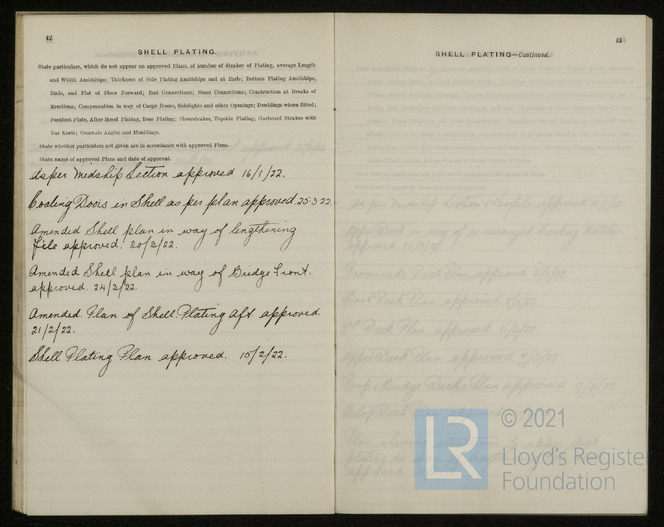 42
SHELL PLATING.
State particulars, which do not appear on approved Plans, of number of Strakes of Plating, average Length
and Width Amidships; Thickness of Side Plating Amidships and at Ends; Bottom Plating Amidships,
Ends, and Flat of Floor Forward; End Connections; Seam Connections; Construction at Breaks of
Erections; Compensation in way of Cargo Doors, Sidelights and other Openings; Doublings where fitted;
Forefoot Plate, After Hood Plating, Boss Plating; Sheerstrakes, Topside Plating, Garboard Strakes with
Bar Keels; Gunwale Angles and Mouldings.
State whether particulars not given are in accordance with approved Plans.
State name of approved Plans and date of approval.
As per Midship Section approved 16/1/22.
Coaling Doors in Shell as per plan approved 25.3.22.
Amended Shell plan in way of lengthening
approved. 20/3/22.
Amended Shell plan in way of Bridge Front.
approved. 24/3/22.
Amended Plan of Shell Plating Aft approved.
21/2/22.
Shell Plating Plan approved. 10/2/22.
43
SHELL PLATING—Continued.
As per Midship Section & Profile approved
approved
Promenade Deck Plan approved
Boat Deck Plan approved
Deck Plan approved
Upper Deck Plan approved
Bridge Decks Plan approved
Deck Plan
approved
LR
© 2021
Lloyd's Register
Foundation